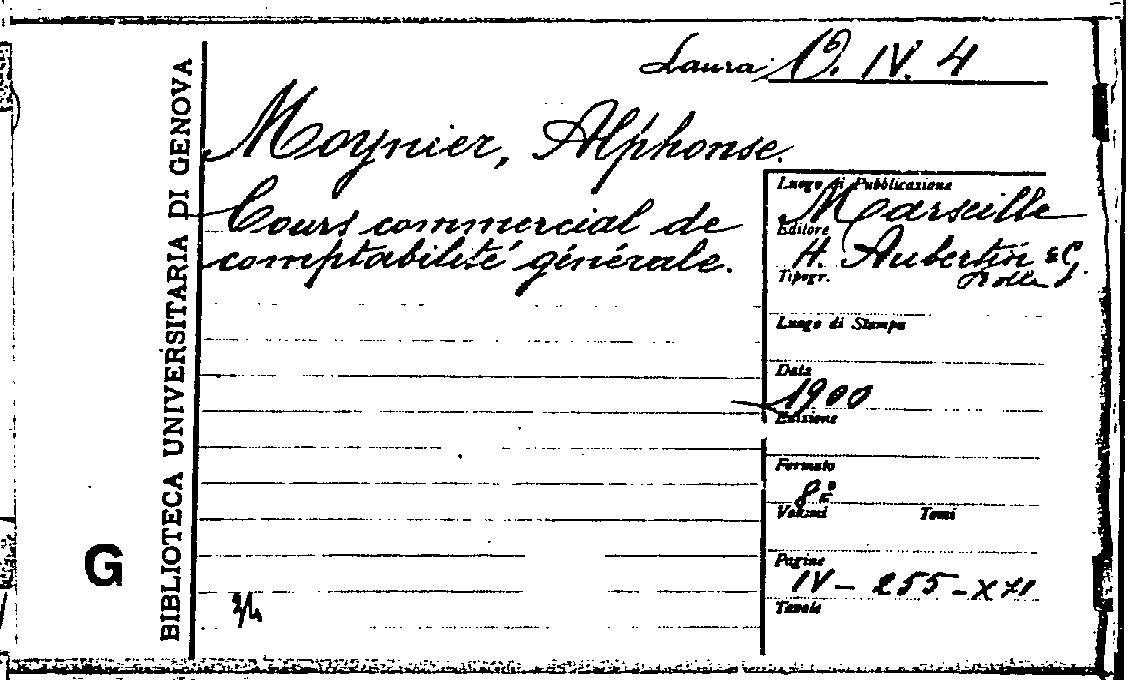 BIBLIOTECA UNIVERSITARIA DI GENOVA
G
Laura IV. 4
Moynier, Alphonse.
Cours commercial de
comptabilité générale.
Luogo di Pubblicazione
Marseille
Editore
H. Aubertin & C.
Tipogr.
Rolle
Luogo di Stampa
Data
1900
Edizione
Formato
8º
Volumi Tomi
Pagine
IV - 255 - XVI
Tavole